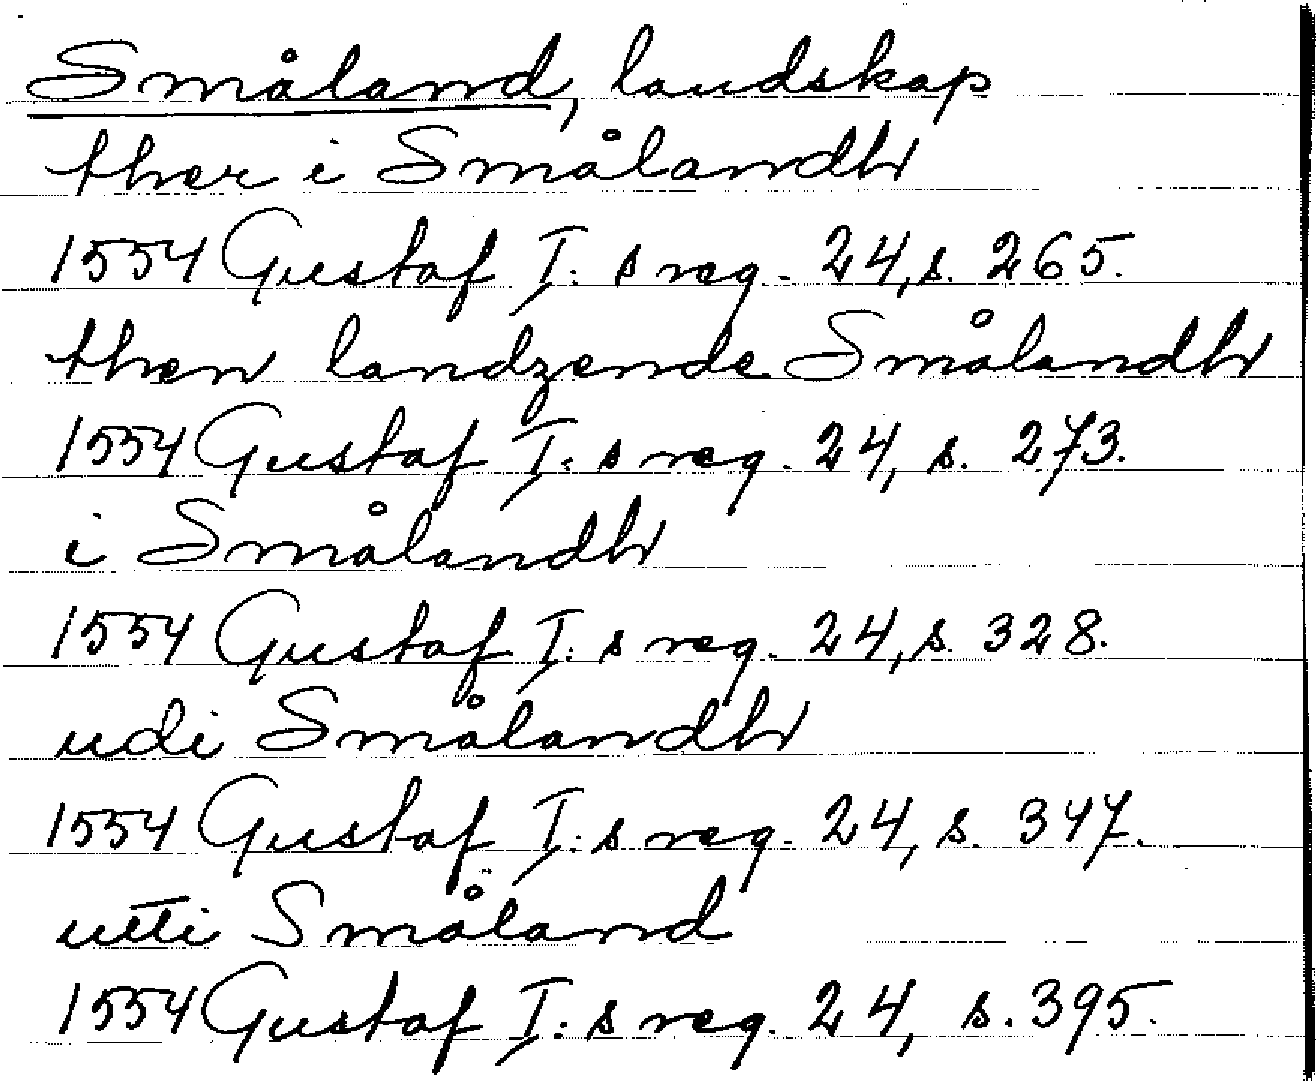 Småland, landskap
ther i Smålandh
1554 Gustaf I:s reg. 24, s. 265.
then landzende Smålandh
1554 Gustaf I:s reg. 24, s. 273.
i Smålandh
1554 Gustaf I:s reg. 24, s. 328.
udi Smålandh
1554 Gustaf I:s reg. 24, s. 347.
utti Småland
1554 Gustaf I:s reg. 24, s. 395.